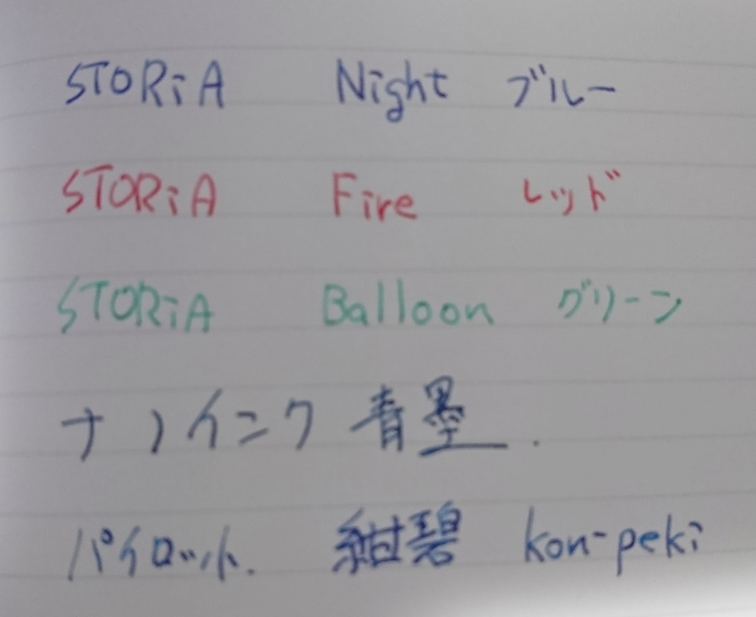 STORiA Night ブルー
STORiA Fire レッド
STORiA Balloon グリーン
ナノインク 青墨.
パイロット. 紺碧 kon-peki